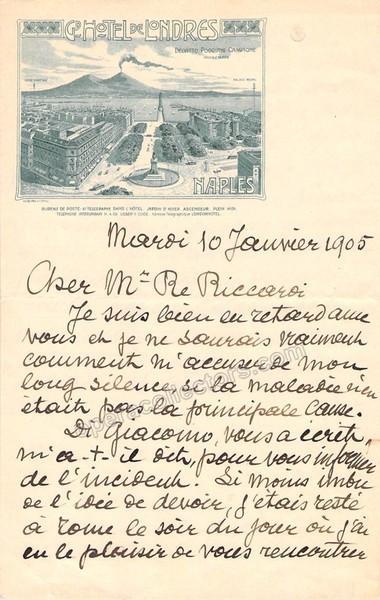 Gd HÔTEL DE LONDRES
NAPLES
BUREAU DE POSTE ET TELEGRAPHE DANS L'HÔTEL. JARDIN D'HIVER. ASCENSEUR. PLEIN MIDI.
Mardi 10 Janvier 1905
Cher Mr Re Riccardi
Je suis bien en retard avec
vous et je ne saurais vraiment
comment m'accuser de mon
long silence si la maladie n'en
était pas la principale cause.
Di Giacomo, vous a écrit,
m'a-t-il dit, pour vous informer
de l'incident. Si moins imbu
de l'idée de devoir, j'étais resté
à Rome le soir du jour où j'ai
eu le plaisir de vous rencontrer
operacollectors.com